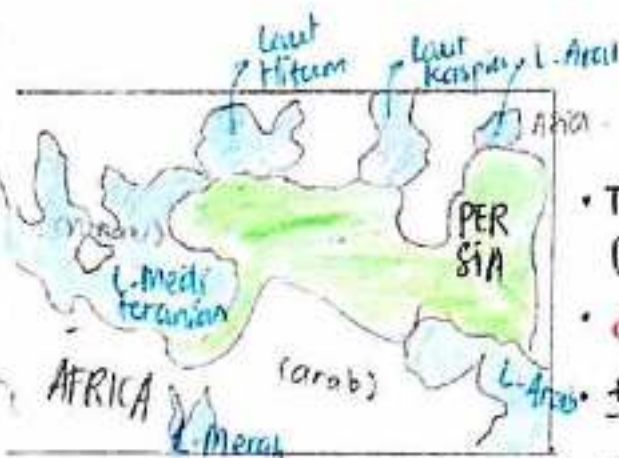 Laut
Hitam
Laut
Kaspia
L. Aral
Asia
PER
SIA
L. Medi
teranian
AFRICA
(arab)
L. Arab
L. Merah